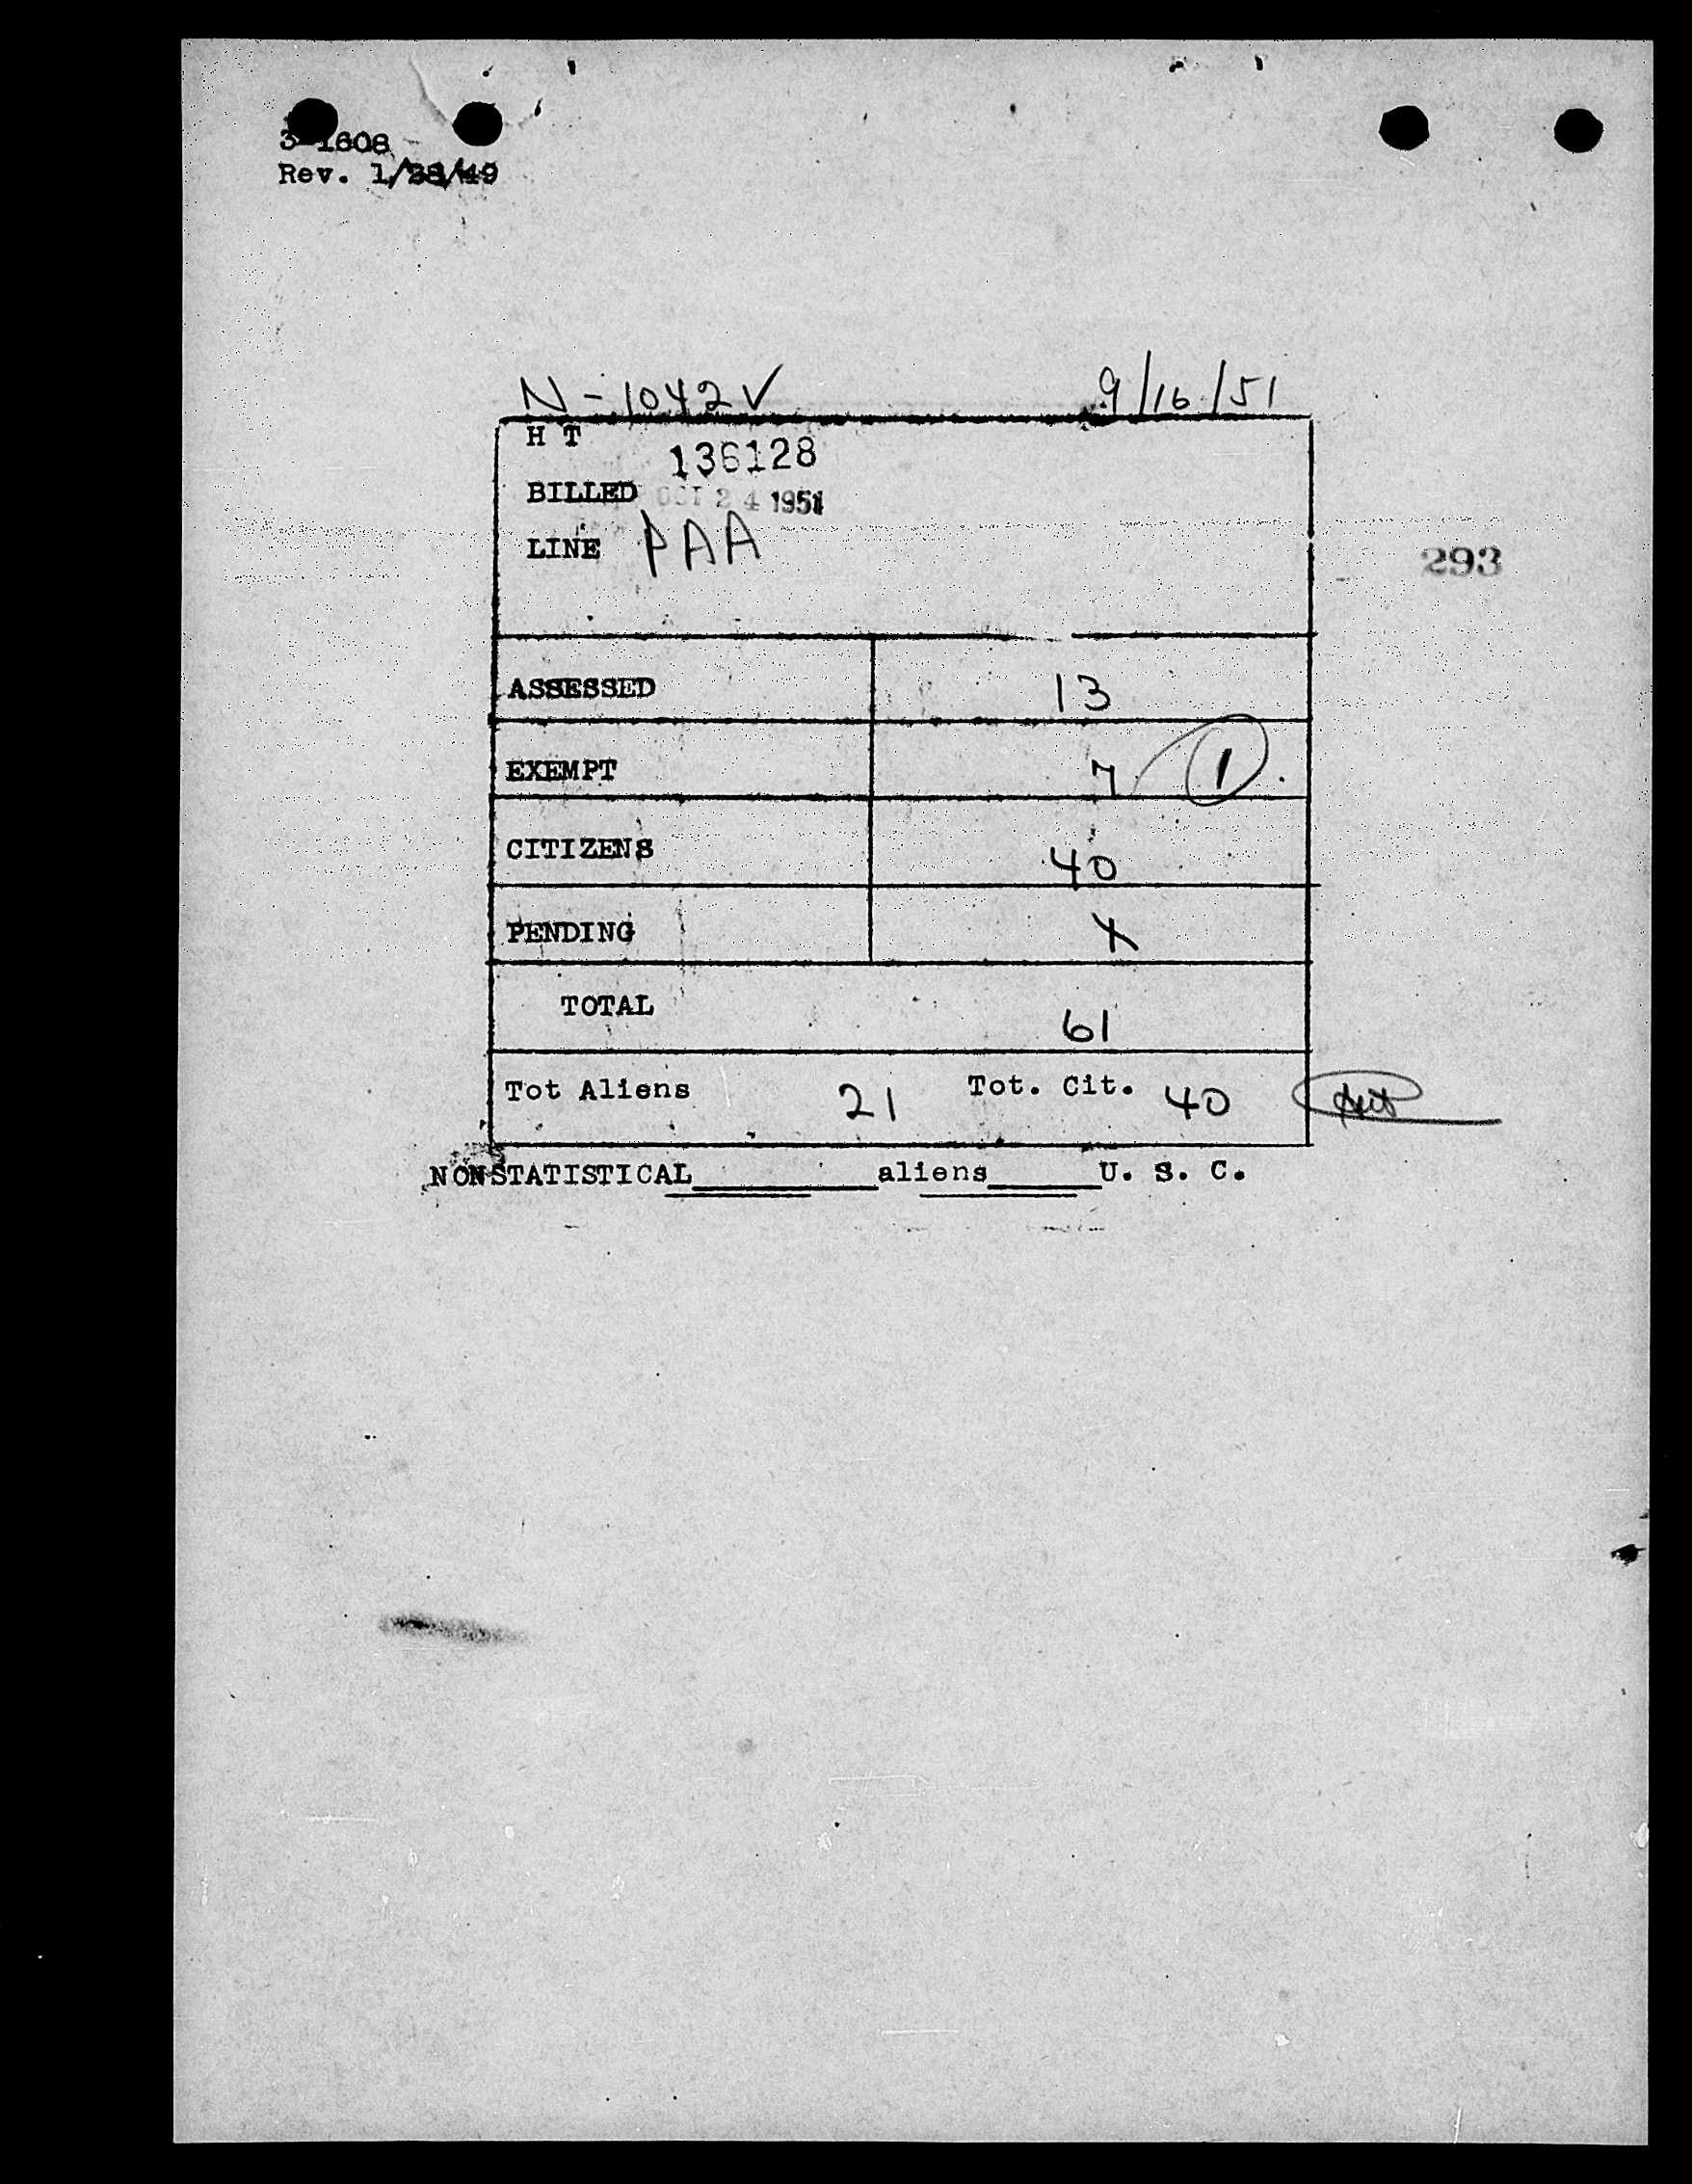 3-1608
Rev. 1/28/49
N-1042V 9/16/51
H T 136128
BILLED OCT 24 1951
LINE PAA
293
ASSESSED 13
EXEMPT 7 1
CITIZENS 40
PENDING X
TOTAL 61
Tot Aliens 21 Tot. Cit. 40
NONSTATISTICAL__________aliens______U. S. C.